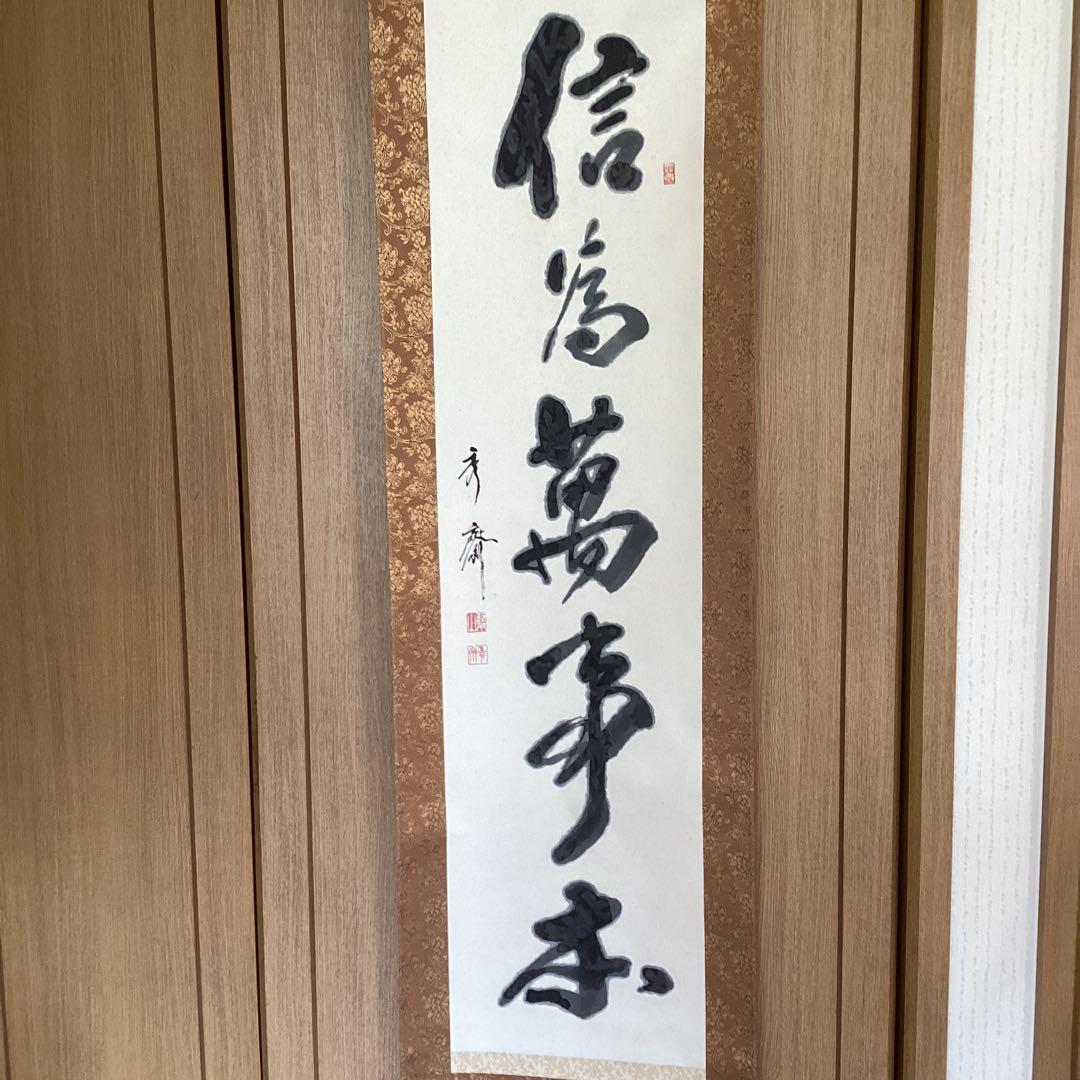 信為萬事本
秀齋